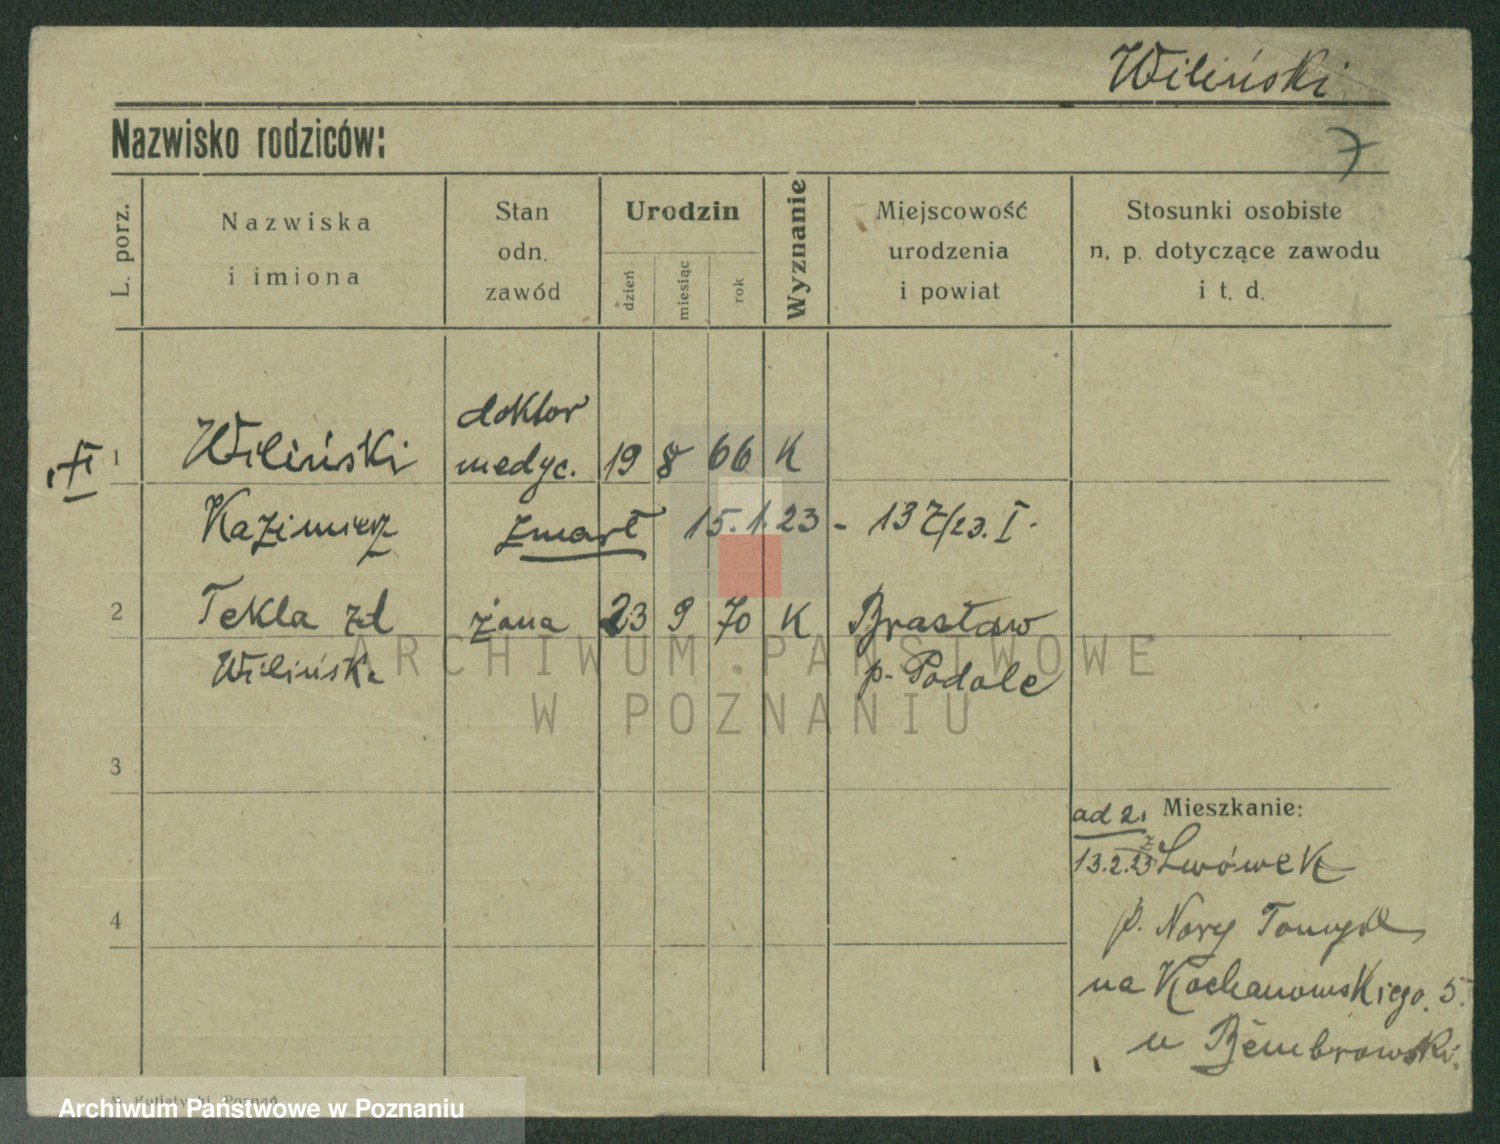 Wiliński
Nazwisko rodziców:
7
L. porz.
Nazwiska
i imiona
Stan
odn.
zawód
Urodzin
dzień
miesiąc
rok
Wyznanie
Miejscowość
urodzenia
i powiat
Stosunki osobiste
n. p. dotyczące zawodu
i t. d.
1 Wiliński doktor
medyc. 19 8 66 K
Kazimierz zmarł 15.1.23 - 137/23. I.
2 Tekla zd żona 23 9 70 K Brasław
Wilińska p. Podole
3
ad 2. Mieszkanie:
13.2.23 z Lwówek
4
p. Nowy Tomyśl
na Kochanowskiego 5.
u Bembrowski.
ARCHIWUM PAŃSTWOWE
W POZNANIU
Archiwum Państwowe w Poznaniu